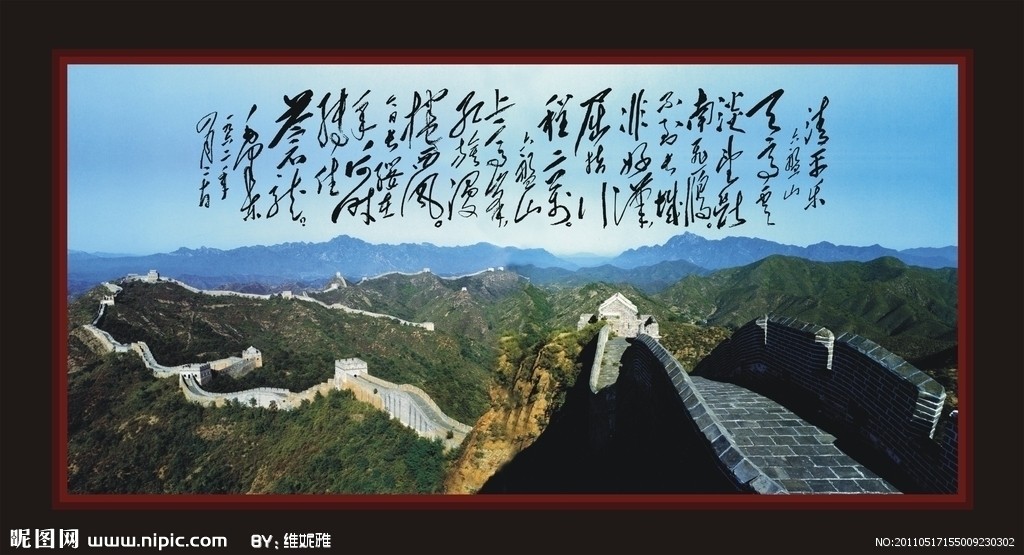 清平乐
六盘山
天高云
淡望断
南飞雁。
不到长城
非好汉
屈指行
程二万。
六盘山
上高峰
红旗漫
卷西风。
今日长缨在
手何时
缚住
苍龙。
毛泽东
昵图网 www.nipic.com BY:维妮雅
NO:20110517155009230302